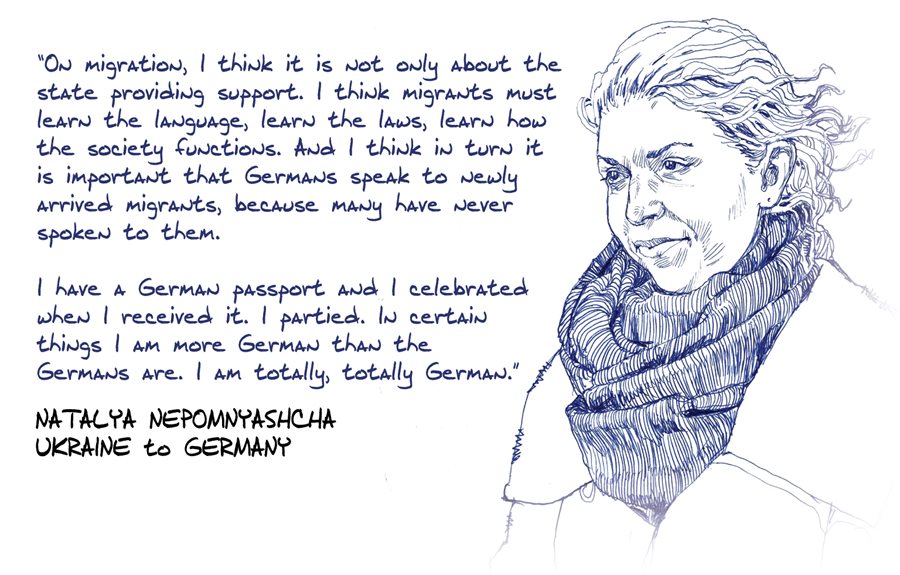 "On migration, I think it is not only about the
state providing support. I think migrants must
learn the language, learn the laws, learn how
the society functions. And I think in turn it
is important that Germans speak to newly
arrived migrants, because many have never
spoken to them.
I have a German passport and I celebrated
when I received it. I partied. In certain
things I am more German than the
Germans are. I am totally, totally German."
NATALYA NEPOMNYASHCHA
UKRAINE to GERMANY